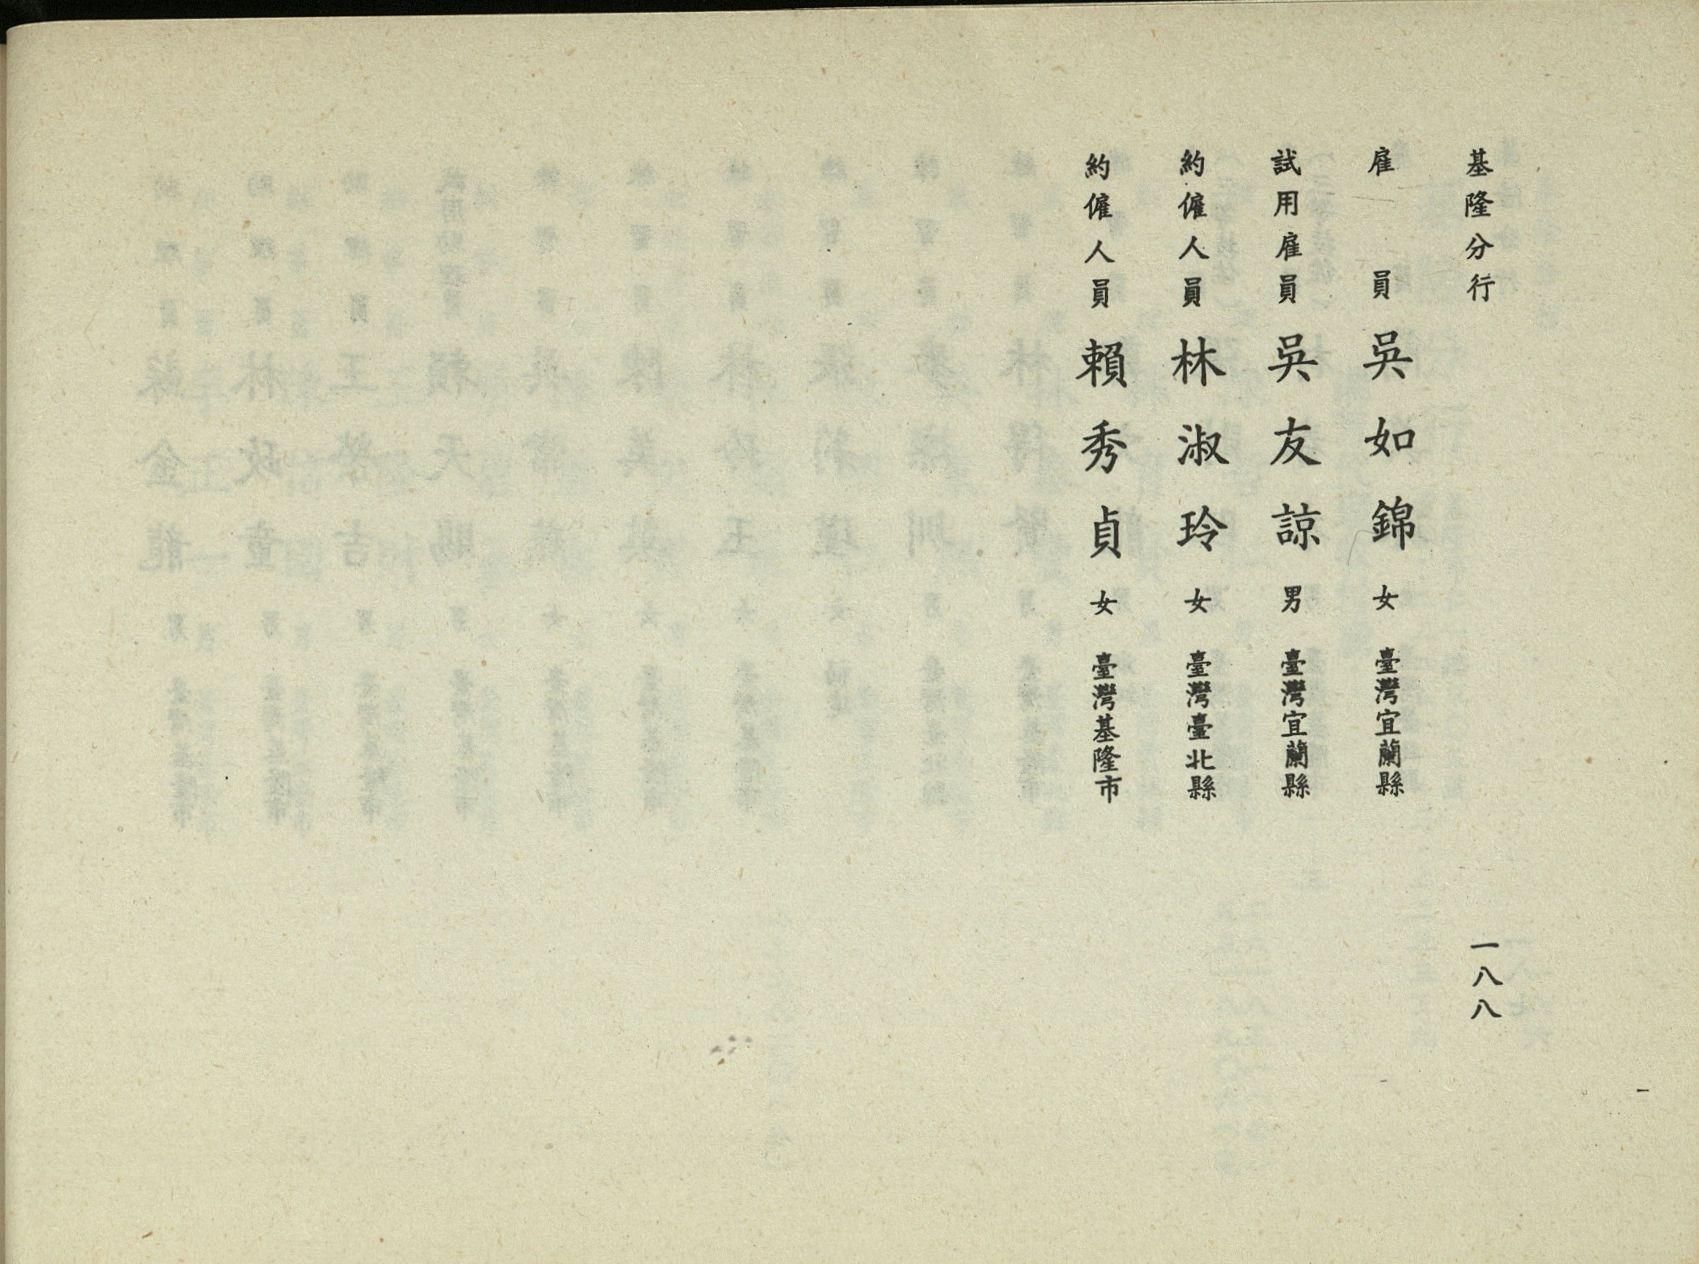 基隆分行
一八八
雇員 吳如錦 女 臺灣宜蘭縣
試用雇員 吳友諒 男 臺灣宜蘭縣
約僱人員 林淑玲 女 臺灣臺北縣
約僱人員 賴秀貞 女 臺灣基隆市